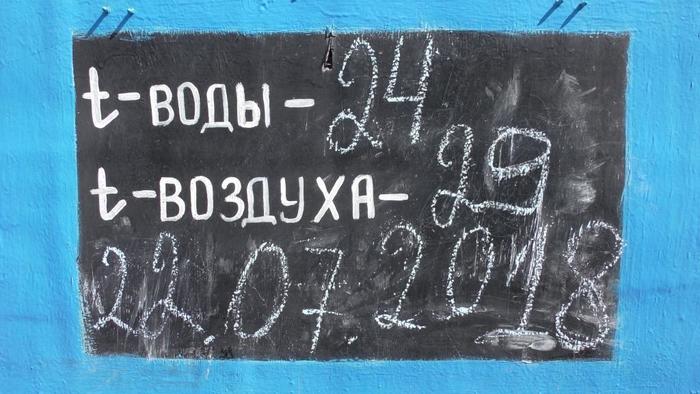 t-воды-24
t-воздуха-29
22.07.2018